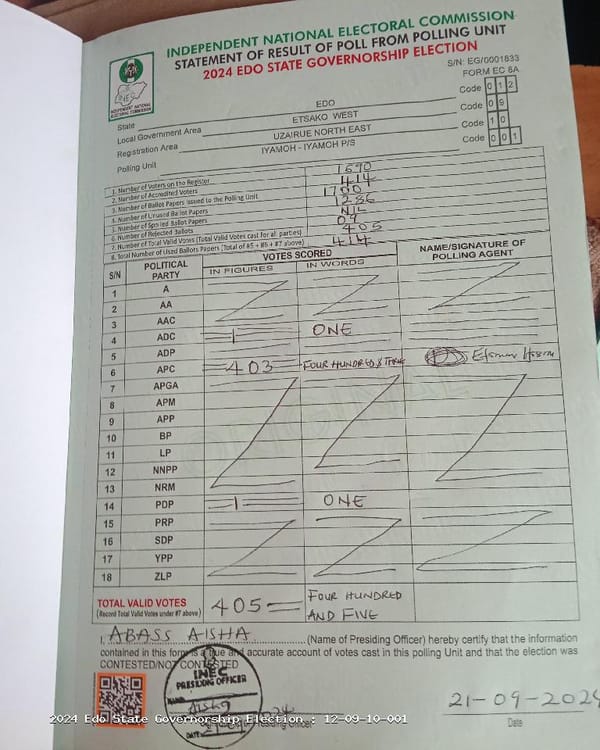 INDEPENDENT NATIONAL ELECTORAL COMMISSION
STATEMENT OF RESULT OF POLL FROM POLLING UNIT
2024 EDO STATE GOVERNORSHIP ELECTION
INDEPENDENT NATIONAL ELECTORAL COMMISSION
S/N: EG/0001833
FORM EC 8A
State EDO Code 012
Local Government Area ETSAKO WEST Code 09
Registration Area UZAIRUE NORTH EAST Code 10
Polling Unit IYAMOH - IYAMOH P/S Code 001
1. Number of Voters on the Register 1690
2. Number of Accredited Voters 414
3. Number of Ballot Papers Issued to the Polling Unit 1700
4. Number of Unused Ballot Papers 1286
5. Number of Spoiled Ballot Papers NIL
6. Number of Rejected Ballots 09
7. Number of Total Valid Votes (Total Valid Votes cast for all parties) 405
8. Total Number of Used Ballots Papers (Total of #5 + #6 + #7 above) 414
S/N POLITICAL PARTY VOTES SCORED NAME/SIGNATURE OF POLLING AGENT
IN FIGURES IN WORDS
1 A
2 AA
3 AAC
4 ADC 1 ONE
5 ADP
6 APC 403 FOUR HUNDRED & THREE
7 APGA
8 APM
9 APP
10 BP
11 LP
12 NNPP
13 NRM
14 PDP 1 ONE
15 PRP
16 SDP
17 YPP
18 ZLP
TOTAL VALID VOTES 405 FOUR HUNDRED
(Record Total Valid Votes under #7 above) AND FIVE
I, ABASS AISHA (Name of Presiding Officer) hereby certify that the information
contained in this form is a true and accurate account of votes cast in this polling Unit and that the election was
CONTESTED/NOT CONTESTED
INEC
PRESIDING OFFICER
NAME
DATE
21-09-2024
Date
2024 Edo State Governorship Election : 12-09-10-001